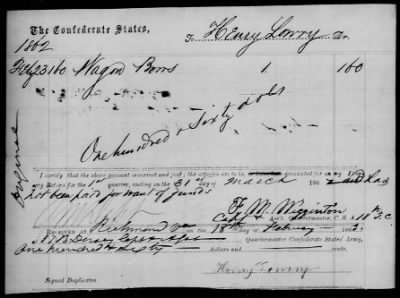 The Confederate States,
To Henry Lowry Dr.
1862
Feby 23 160 Wagon Bows 1 160
One hundred & Sixty dols
I certify that the above account is correct and just; the articles are to be accounted for on my
returns for the 1st quarter, ending the 31st day of March 186 2 and has
not been paid for want of funds
F. M. Wigginton
Capt & Ass't. Quartermaster, C. S. A.
Received at Richmond Va the 18th of February 186
Quartermaster Confederate States Army,
One hundred & Sixty dollars and cents
Henry Lowry
Signed Duplicates.